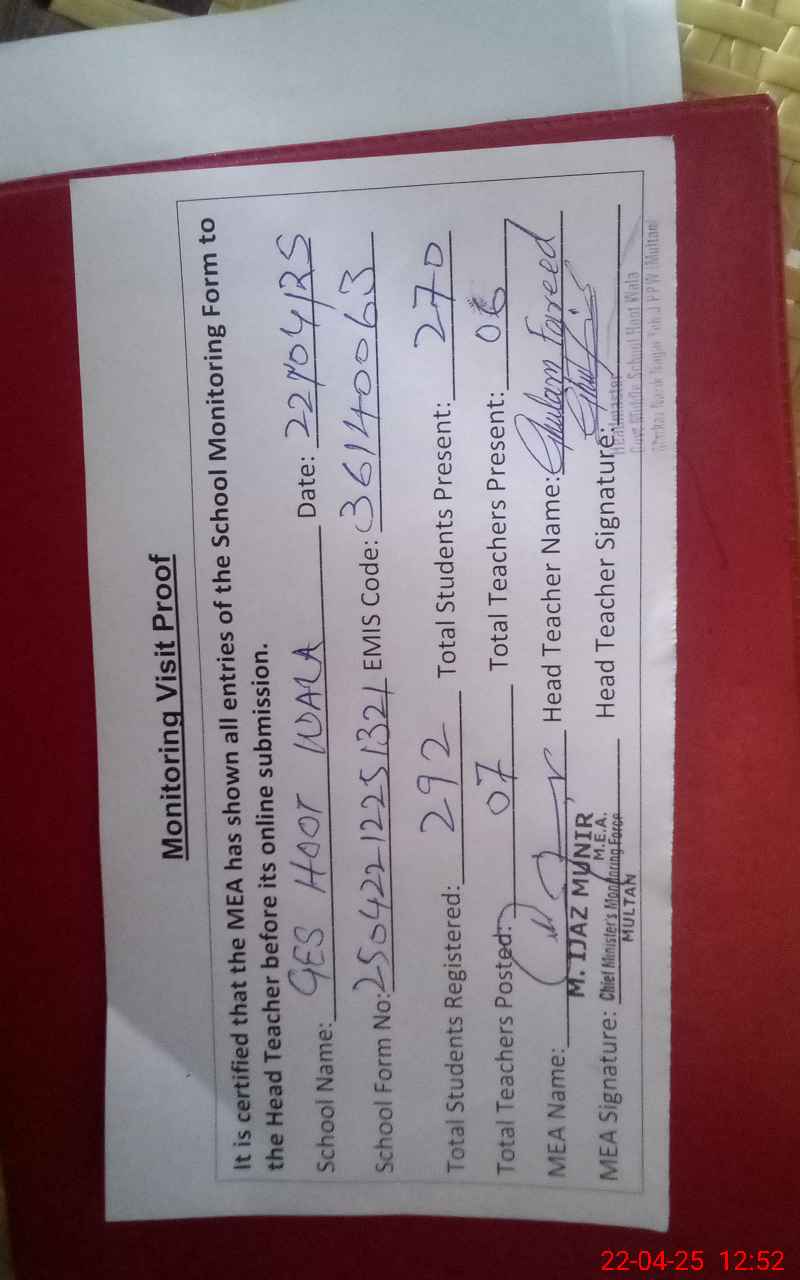 Monitoring Visit Proof
It is certified that the MEA has shown all entries of the School Monitoring Form to
the Head Teacher before its online submission.
School Name: GES HOOT WALA Date: 22/04/25
School Form No: 250422122251321 EMIS Code: 36140063
Total Students Registered: 292 Total Students Present: 270
Total Teachers Posted: 07 Total Teachers Present: 06
MEA Name: Head Teacher Name: Ghulam Fareed
M. IJAZ MUNIR
M.E.A.
MEA Signature: Chief Minister's Monitoring Force Head Teacher Signature:
MULTAN
Headmaster
Govt Middle School Hoot Wala
22-04-25 12:52